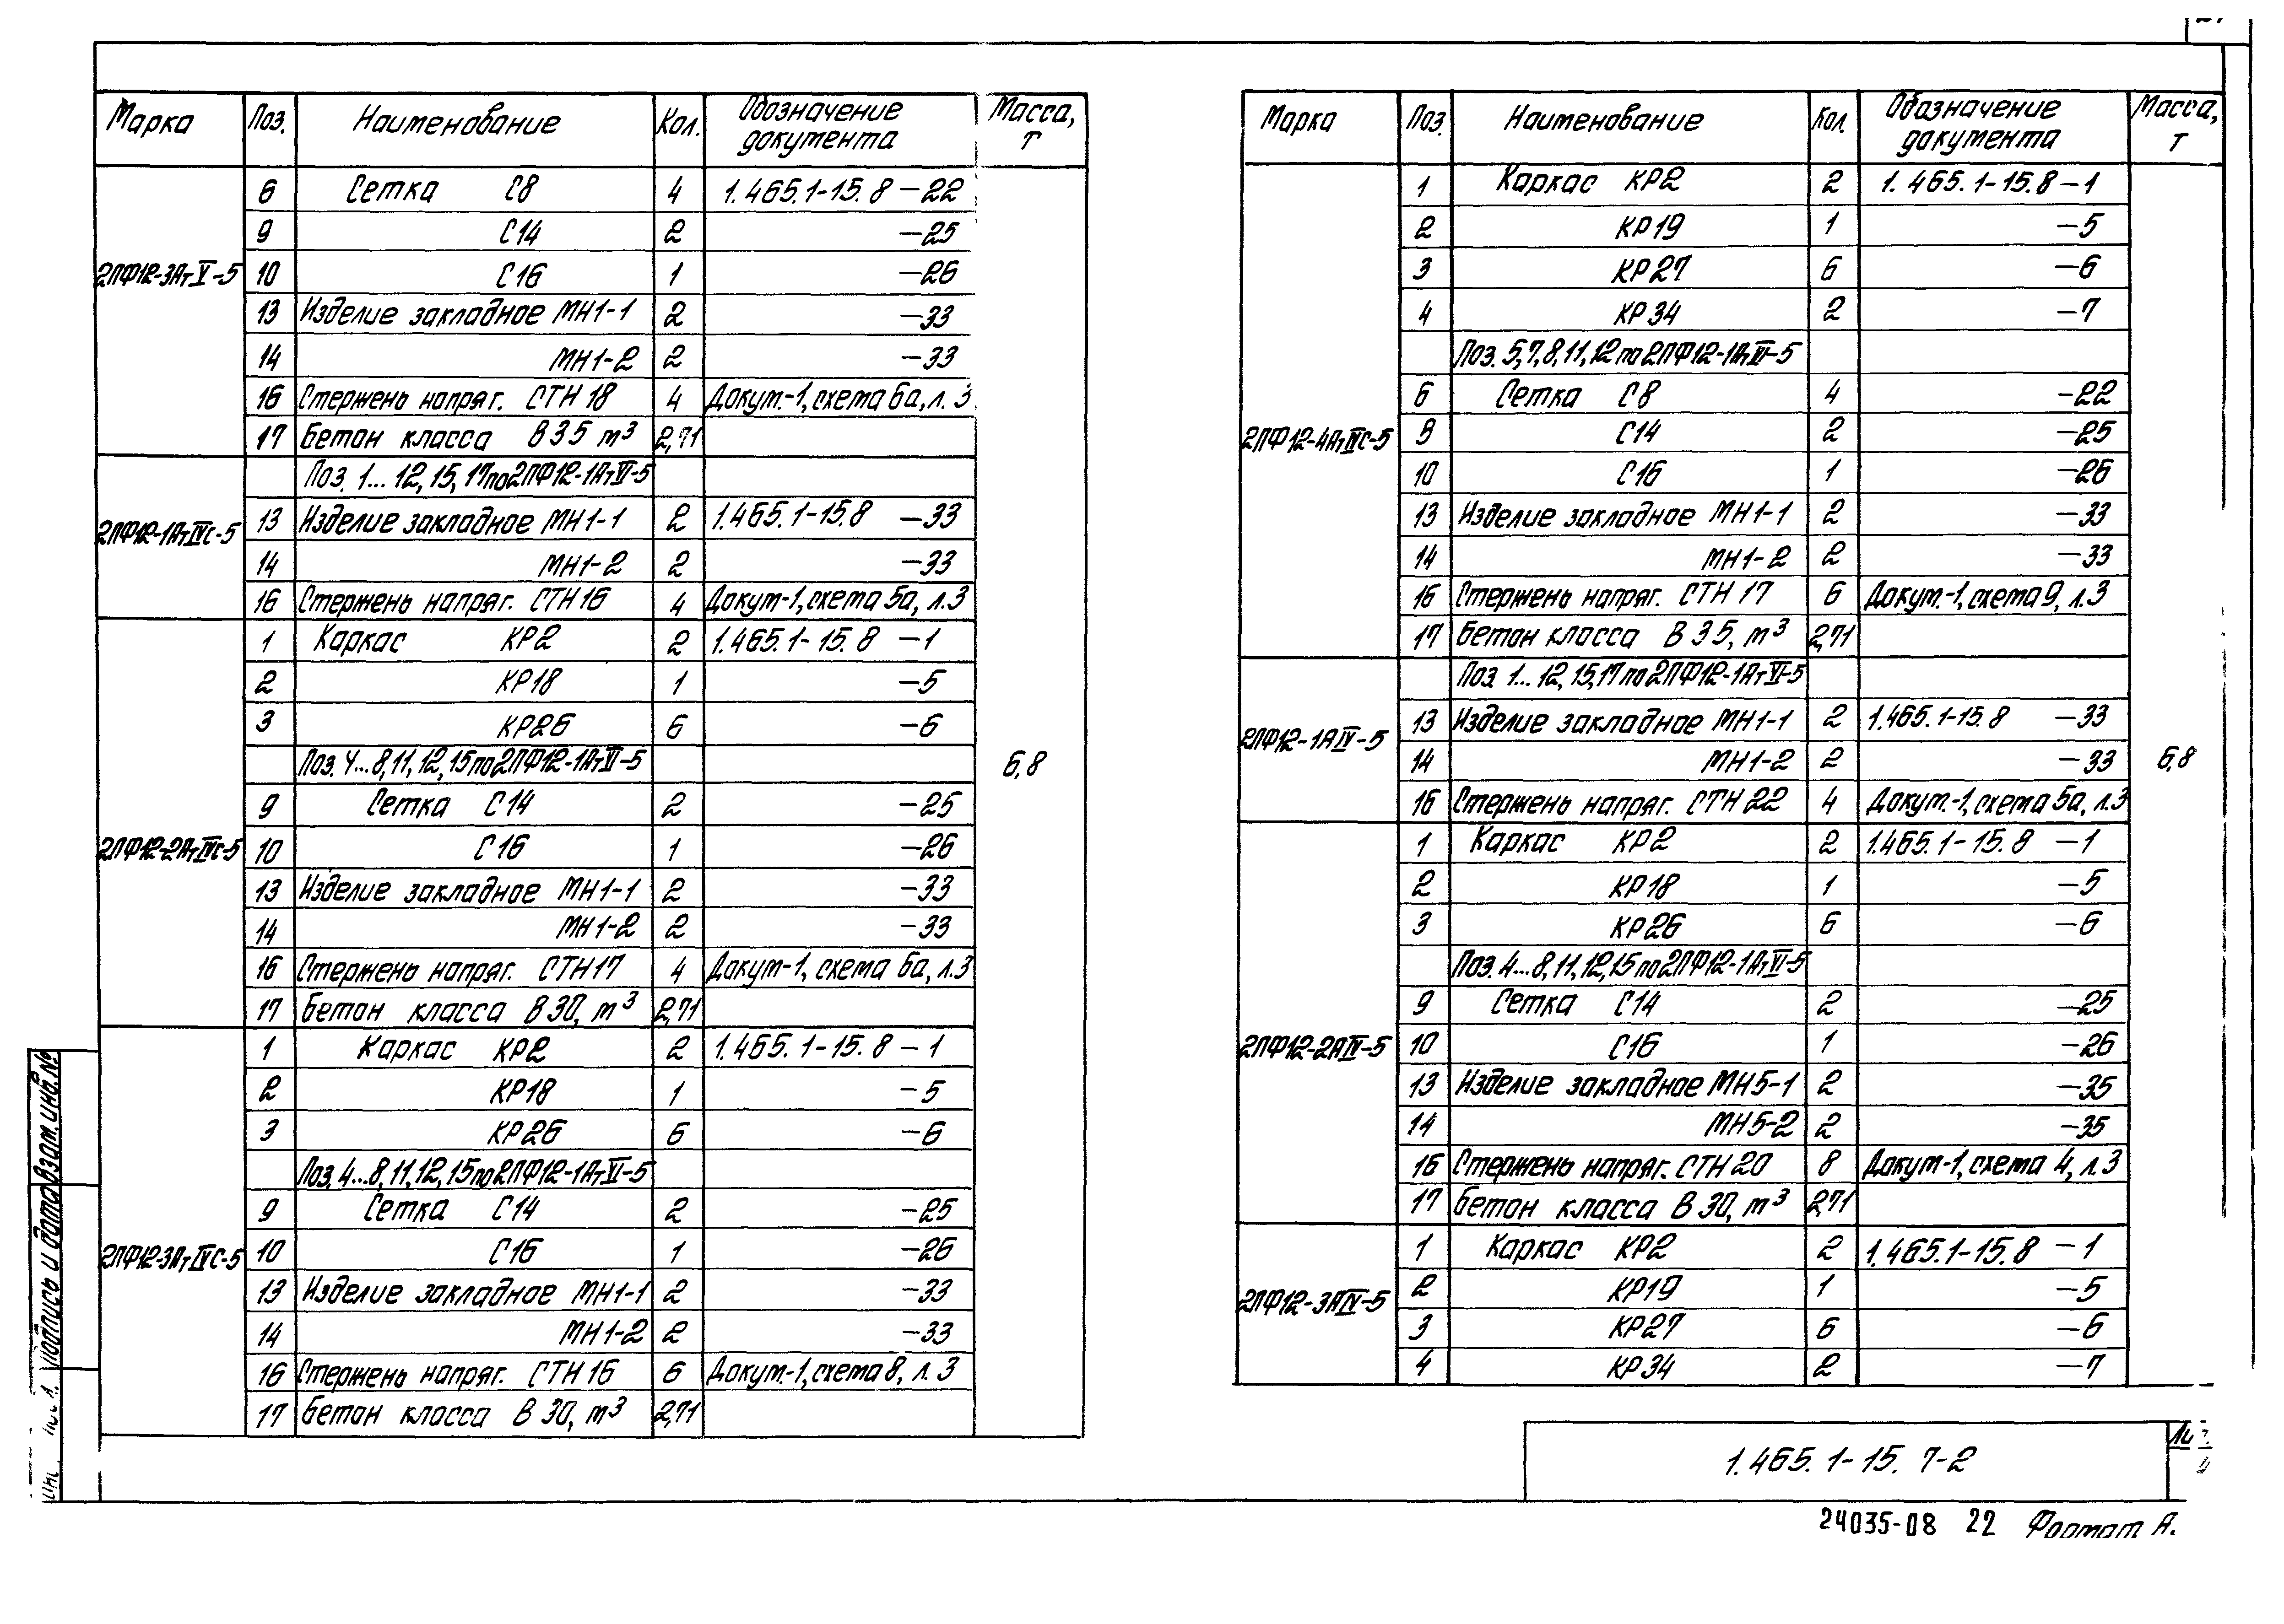 Марка Поз. Наименование Кол. Обозначение документа Масса, т
2ПФ12-3АтV-5
6 Сетка С8 4 1.465.1-15.8 -22
9 С14 2 -25
10 С16 1 -26
13 Изделие закладное МН1-1 2 -33
14 МН1-2 2 -33
16 Стержень напряг. СТН 18 4 Докум.-1, схема 6а, л. 3
17 Бетон класса В35 м³ 2,71
2ПФ12-1АтIVС-5
Поз. 1... 12, 15, 17 по 2ПФ12-1АтVI-5
13 Изделие закладное МН1-1 2 1.465.1-15.8 -33
14 МН1-2 2 -33
16 Стержень напряг. СТН 16 4 Докум-1, схема 5а, л.3
2ПФ12-2АтIVС-5
1 Каркас КР2 2 1.465.1-15.8 -1
2 КР18 1 -5
3 КР26 6 -6
Поз. 4...8, 11, 12, 15 по 2ПФ12-1АтVI-5
9 Сетка С14 2 -25
10 С16 1 -26
13 Изделие закладное МН1-1 2 -33
14 МН1-2 2 -33
16 Стержень напряг. СТН17 4 Докум-1, схема 6а, л.3
17 Бетон класса В30, м³ 2,71
2ПФ12-3АтIVС-5
1 Каркас КР2 2 1.465.1-15.8 -1
2 КР18 1 -5
3 КР26 6 -6
Поз. 4...8, 11, 12, 15 по 2ПФ12-1АтVI-5
9 Сетка С14 2 -25
10 С16 1 -26
13 Изделие закладное МН1-1 2 -33
14 МН1-2 2 -33
16 Стержень напряг. СТН 16 6 Докум.-1, схема 8, л. 3
17 Бетон класса В 30, м³ 2,71
6,8
Марка Поз. Наименование Кол. Обозначение документа Масса, т
2ПФ12-4АтIVС-5
1 Каркас КР2 2 1.465.1-15.8 -1
2 КР19 1 -5
3 КР27 6 -6
4 КР34 2 -7
Поз. 5, 7, 8, 11, 12 по 2ПФ12-1АтVI-5
6 Сетка С8 4 -22
9 С14 2 -25
10 С16 1 -26
13 Изделие закладное МН1-1 2 -33
14 МН1-2 2 -33
16 Стержень напряг. СТН 17 6 Докум.-1, схема 9, л.3
17 Бетон класса В35, м³ 2,71
2ПФ12-1АIV-5
Поз. 1... 12, 15, 17 по 2ПФ12-1АтVI-5
13 Изделие закладное МН1-1 2 1.465.1-15.8 -33
14 МН1-2 2 -33
16 Стержень напряг. СТН 22 4 Докум.-1, схема 5а, л.3
2ПФ12-2АIV-5
1 Каркас КР2 2 1.465.1-15.8 -1
2 КР18 1 -5
3 КР26 6 -6
Поз. 4...8, 11, 12, 15 по 2ПФ12-1АтVI-5
9 Сетка С14 2 -25
10 С16 1 -26
13 Изделие закладное МН5-1 2 -35
14 МН5-2 2 -35
16 Стержень напряг. СТН 20 8 Докум-1, схема 4, л.3
17 Бетон класса В 30, м³ 2,71
2ПФ12-3АIV-5
1 Каркас КР2 2 1.465.1-15.8 -1
2 КР19 1 -5
3 КР27 6 -6
4 КР34 2 -7
6,8
Взам. инв. №
Подпись и дата
1.465.1-15.7-2
24035-08 22 Формат А.